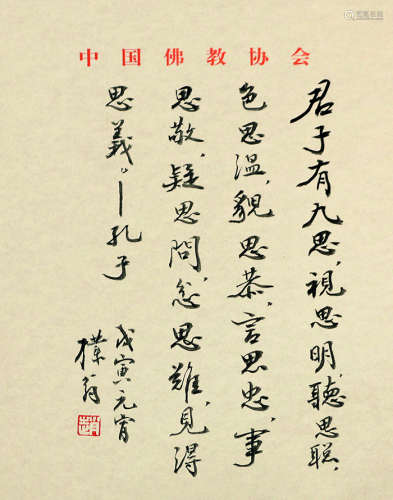 中国佛教协会
君子有九思，視思明，聽思聡，
色思溫，貌思恭，言思忠，事
思敬，疑思問，忿思難，見得
思義。——孔子
戊寅元宵
樸翁
趙